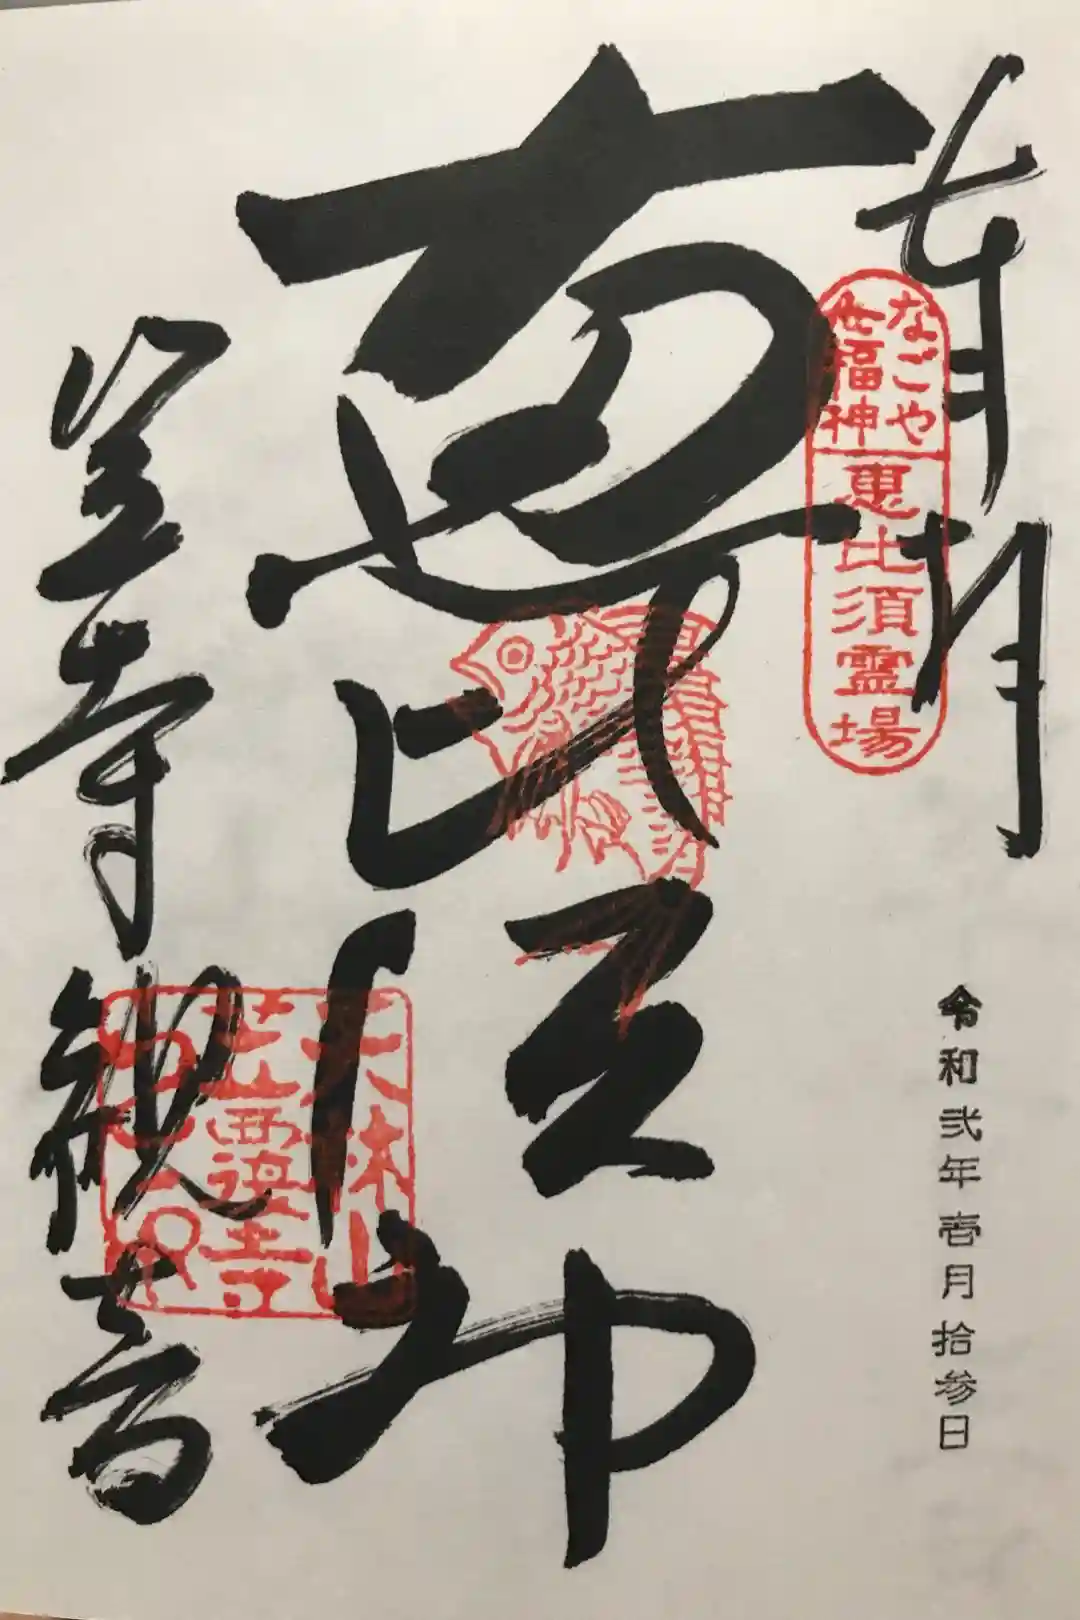 奉拝
なごや
七福神
恵比須霊場
令和弐年壱月拾参日
恵比須神
天林山
笠覆寺
笠寺観音